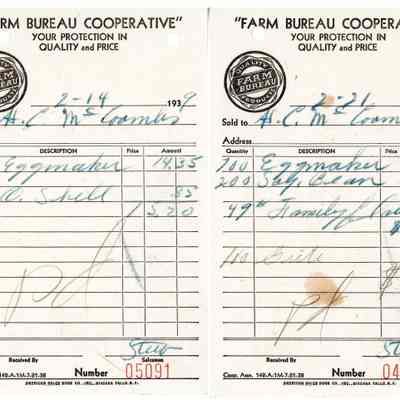 ARM BUREAU COOPERATIVE"
YOUR PROTECTION IN
QUALITY and PRICE
QUALITY
FARM
BUREAU
PRODUCTS
2-14 1939
H. C. Mc Coombs
DESCRIPTION Price Amount
Eggmaker 14.35
O. Shell .85
15.20
Pd
Received By Salesman
Stew
Coop. Assn. 149-A-1M-7-01-38 Number 05091
AMERICAN SALES BOOK CO., INC., NIAGARA FALLS, N.Y.
"FARM BUREAU COOPERA
YOUR PROTECTION IN
QUALITY and PRICE
QUALITY
FARM
BUREAU
PRODUCTS
2-21
Sold to H. C. Mc Coom
Address
Quantity DESCRIPTION Price
700 Eggmaker
200 Soy. Bean
49# Family
100
$
Pd.
Received By
Stew
Coop. Assn. 149-A-1M-7-01-38 Number 04
AMERICAN SALES BOOK CO., INC., NIAGARA FALLS, N.Y.